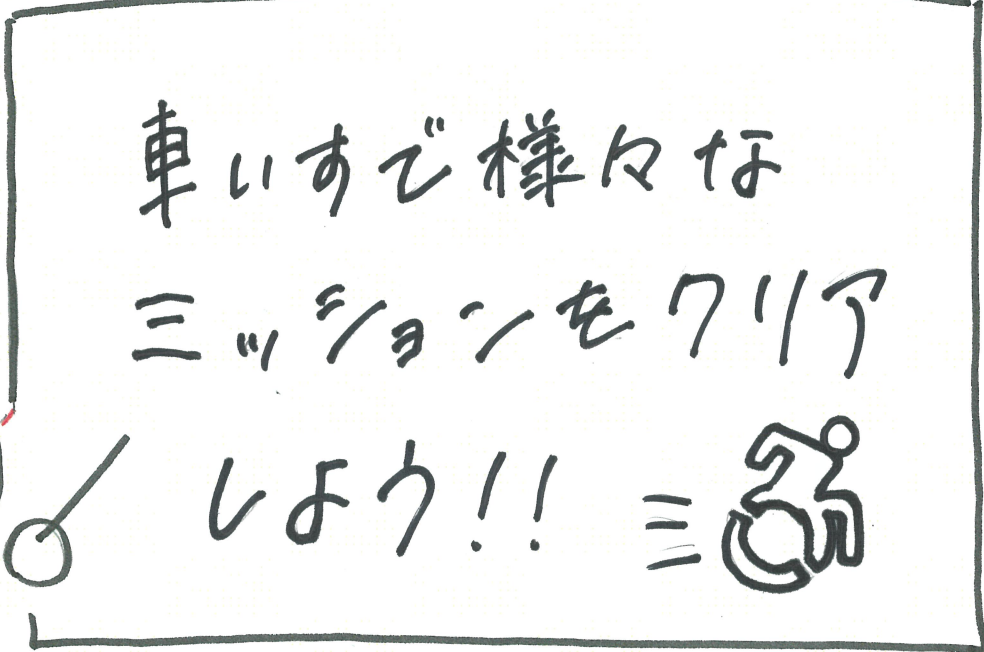 車いすで様々な
ミッションをクリア
しよう!!